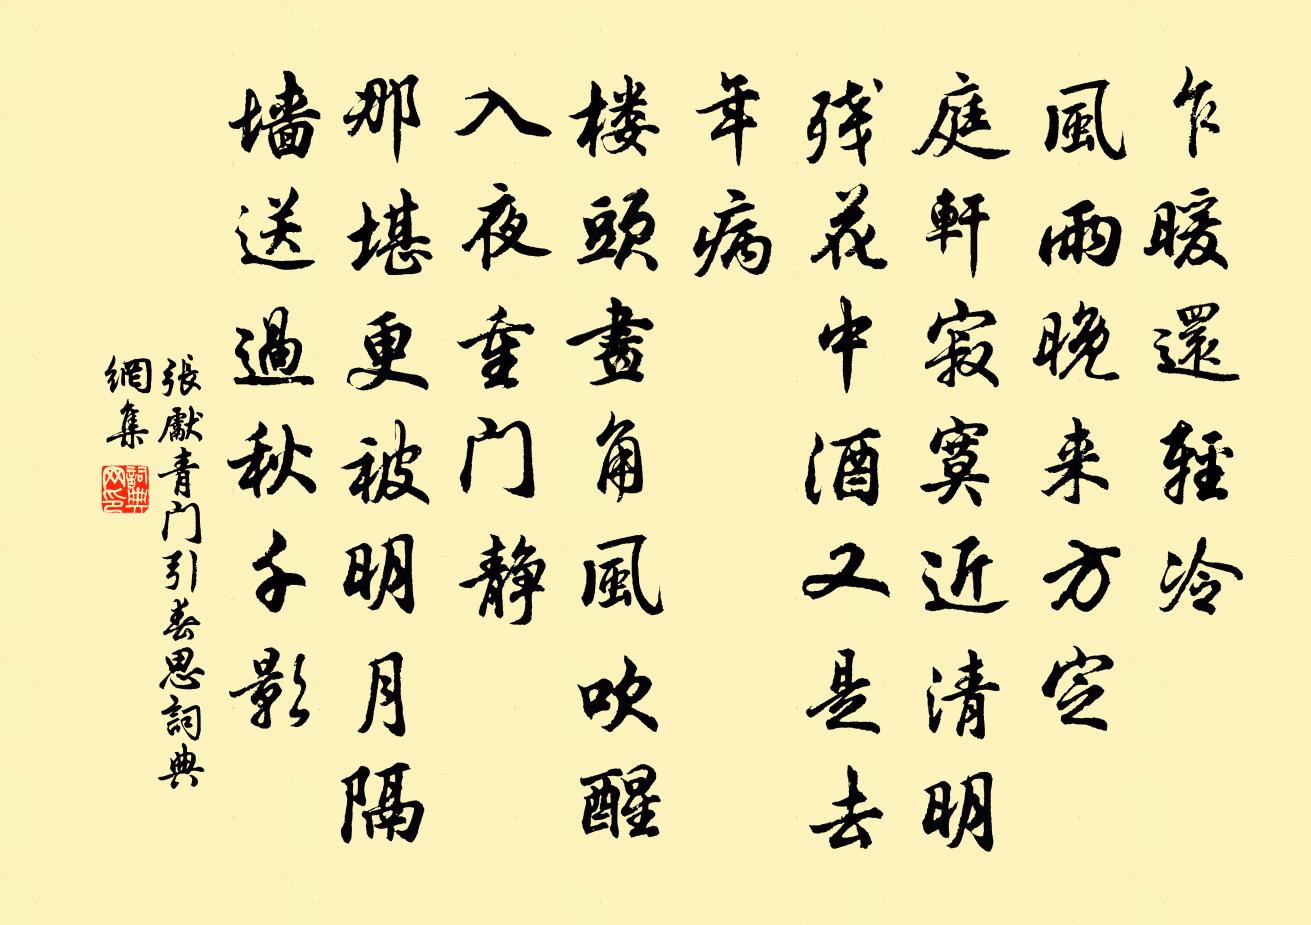 乍暖還輕冷
風雨晚来方定
庭軒寂寞近清明
残花中酒又是去
年病
楼頭畫角風吹醒
入夜重门静
那堪更被明月隔
墙送過秋千影
張獻青门引春思詞典
網集
詞典
网印